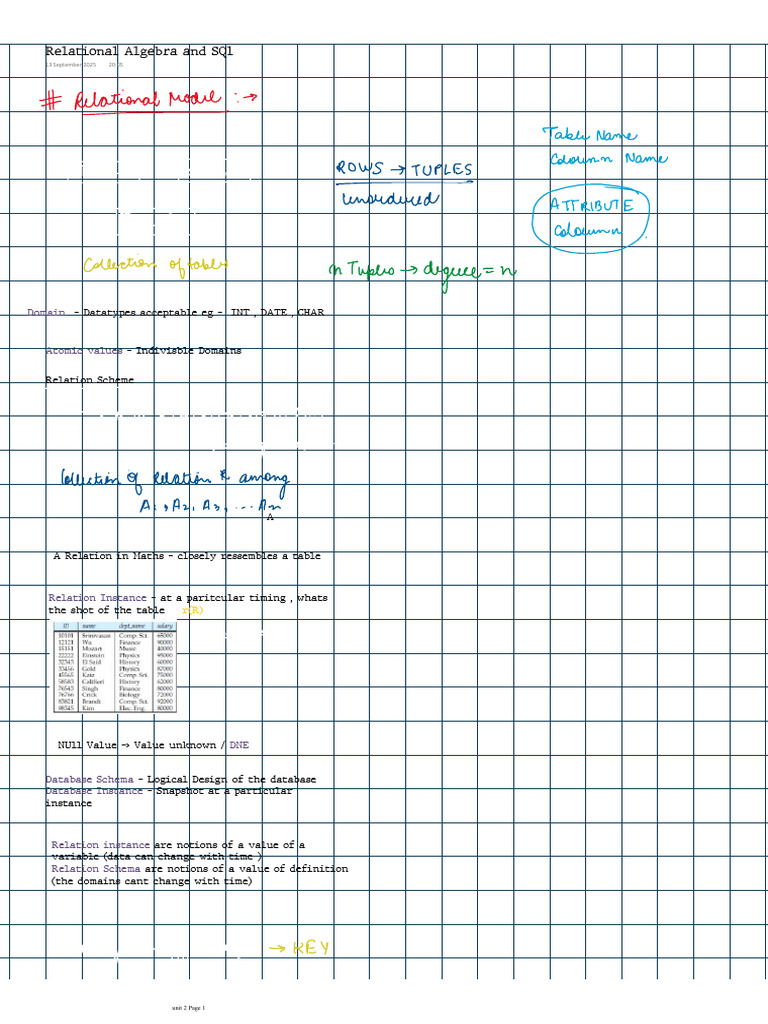 Relational Algebra and SQl
13 September 2025
# Relational Model :→
Table Name
Coloumn Name
ROWS → TUPLES
unordered
ATTRIBUTE
Coloumn
Collection of tables
n Tuples → degree = n
Domain - Datatypes acceptable eg - INT , DATE , CHAR
Atomic values - Indivisble Domains
Relation Scheme
Collection of relation R among
A1, A2, A3, ... An
A
A Relation in Maths - closely ressembles a table
Relation Instance - at a paritcular timing , whats
the shot of the table r(R)
ID name dept_name salary
10101 Srinivasan Comp. Sci. 65000
12121 Wu Finance 90000
15151 Mozart Music 40000
22222 Einstein Physics 95000
32343 El Said History 60000
33456 Gold Physics 87000
45565 Katz Comp. Sci. 75000
58583 Califieri History 62000
76543 Singh Finance 80000
76766 Crick Biology 72000
83821 Brandt Comp. Sci. 92000
98345 Kim Elec. Eng. 80000
NUll Value → Value unknown / DNE
Database Schema - Logical Design of the database
Database Instance - Snapshot at a particular
instance
Relation instance are notions of a value of a
variable (data can change with time )
Relation Schema are notions of a value of definition
(the domains cant change with time)
→ KEY
unit 2 Page 1